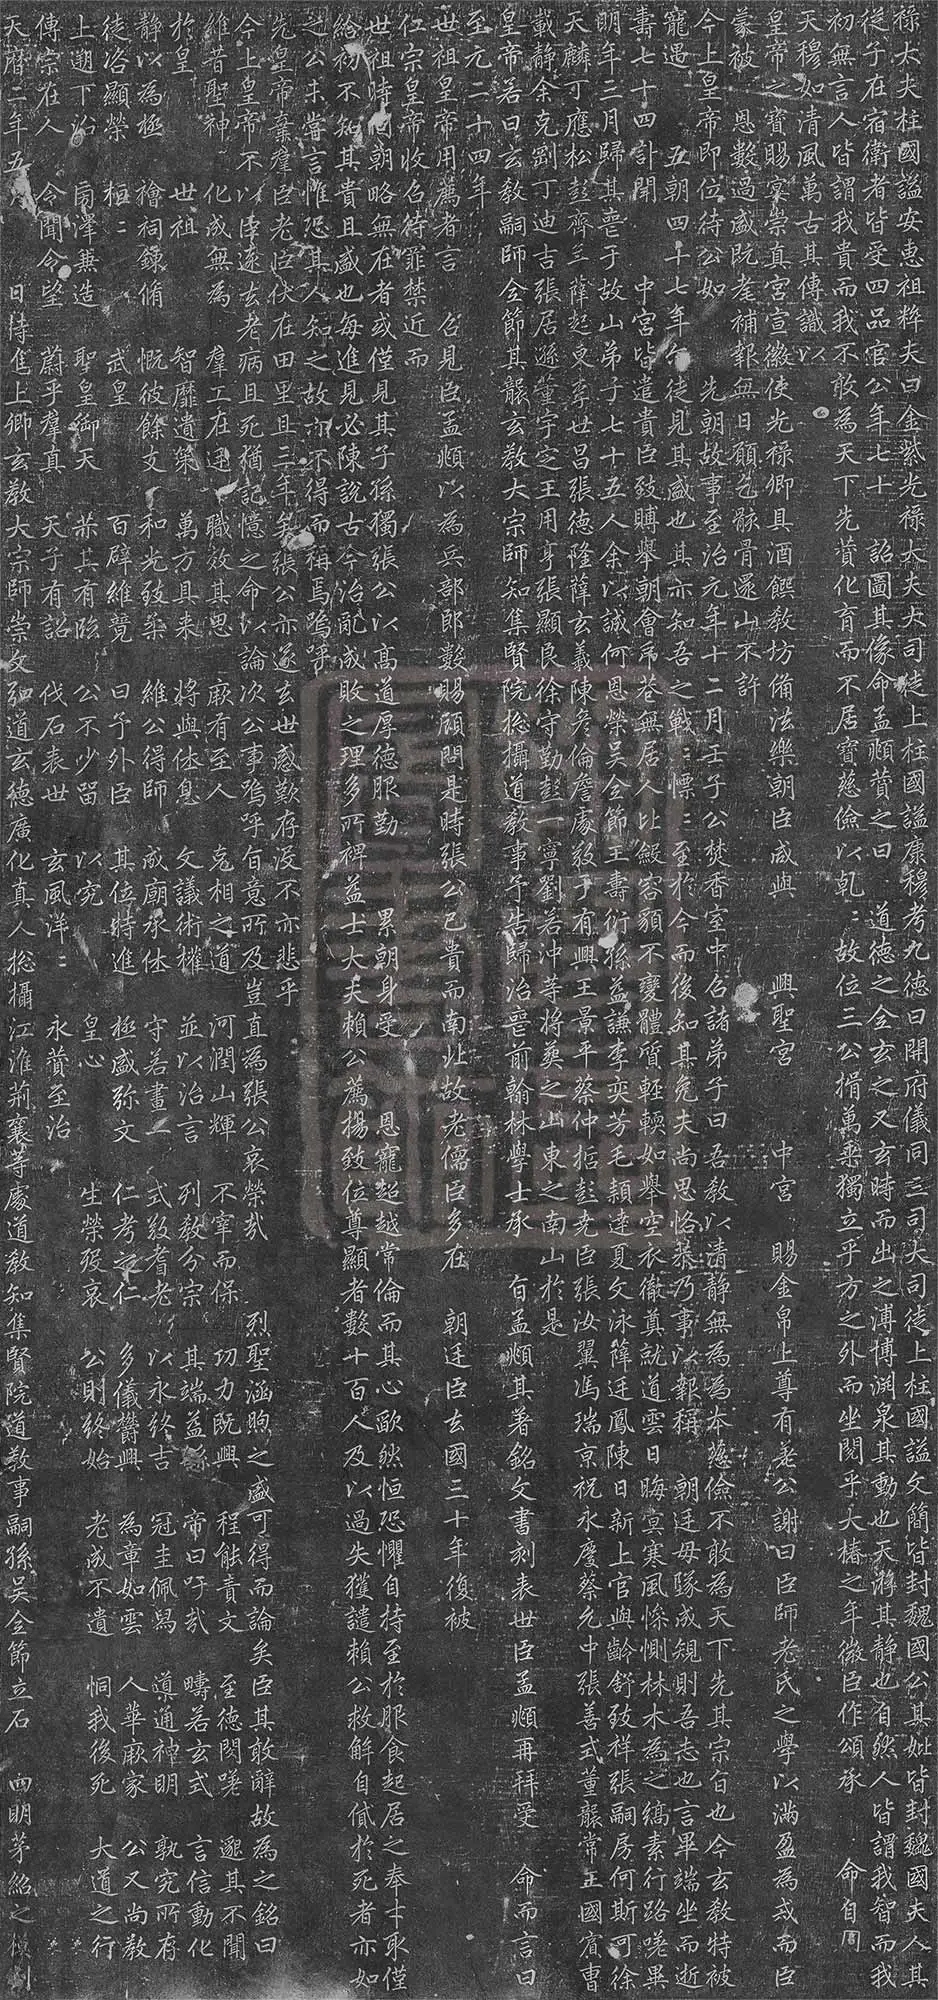 祿大夫柱國謚安惠祖粹夫曰金紫光祿大夫大司徒上柱國謚康穆考九德曰開府儀同三司大司徒上柱國謚文簡皆封魏國公其妣皆封魏國夫人其
從子在宿衛者皆受四品官公年七十 詔圖其像命孟頫贊之曰 道德之全玄之又玄時而出之溥博淵泉其動也天游其靜也自然人皆謂我智而我
初無言人皆謂我貴而我不敢為天下先贊化育而不居寶慈儉以乾乾故位三公捐萬乘獨立乎方之外而坐閱乎大椿之年微臣作頌承 命自
天穆如清風萬古其傳識以
皇帝之寶賜宴崇真宮宣徽使光祿卿具酒饌教坊備法樂朝臣咸與 興聖宮 中宮 賜金帛上尊有差公謝曰臣師老氏之學以滿盈為戒而臣
蒙被 恩數過盛既耄補報無日願乞骸骨還山不許
今上皇帝即位待公如 先朝故事至治元年十二月壬子公焚香室中召諸弟子曰吾教以清靜無為為本慈儉不敢為天下先其宗旨也今玄教特被
寵遇 五朝四十七年今徒見其盛也其亦知吾之戰戰慄慄至於今而後知其免夫尚思恪恭乃事以報稱 朝廷毋隊成規則吾志也言畢端坐而逝
壽七十四訃聞 中宮皆遣貴臣致賻舉朝會弔巷無居人比殮容頟不變體質輕軟如舉空衣徹奠就道雲日晦冥寒風慘惻林木為之縞素行路嗟異
明年三月歸其喪于故山弟子七十五人余以誠何恩榮吳全節王壽衍孫益謙李奕芳毛穎達夏文泳薛廷鳳陳日新上官與齡舒致祥張嗣房何斯可徐
天麟丁應松彭齊三薛起東李世昌張德隆薛玄義陳彥倫詹處敬于有興王景平蔡仲哲彭堯臣張汝翼馮瑞京祝永慶蔡允中張善式董襲常王國賓曹
載靜余克劉丁迪吉張居遜董宇定王用亨張顯良徐守勤彭一寧劉若沖等將葬之山東之南山於是
皇帝若曰玄教嗣師全節其襲玄教大宗師知集賢院總攝道教事予告歸治喪前翰林學士承 旨孟頫其著銘文書刻表世臣孟頫再拜受 命而言曰
至元二十四年
世祖皇帝用薦者言 召見臣孟頫以為兵部郎數賜顧問是時張公已貴而南北故老儒臣多在 朝廷臣去國三十年復被
仁宗皇帝收召待罪禁近而
世祖時同朝略無在者或僅見其子孫獨張公以高道厚德服勤 累朝身受 恩寵超越常倫而其心歐然恒恐懼自持至於服食起居之奉才取僅
給初不知其貴且盛也每進見必陳說古今治亂成敗之理多所裨益士大夫賴公薦揚致位尊顯者數十百人及以過失獲譴賴公救解自貸於死者亦如
之公未嘗言惟恐其人知之故亦不得而稱焉嗚呼
先皇帝棄羣臣老臣伏在田里且三年矣張公亦遂去世感歎存沒不亦悲乎
今上皇帝不以臣遠去老病且死猶記憶之命以論次公事嗚呼旨意所及豈直為張公哀榮哉 烈聖涵煦之盛可得而論矣臣其敢辭故為之銘曰
維昔聖神 化成無為 羣工在廷 職效其思 厥有至人 克相之道 河潤山輝 不宰而保 功力既興 程能責文 至德閔嗟 邈其不聞
於皇 世祖 智靡遺策 萬方具來 將與休息 文議術權 並以治言 列教分宗 其端益緐 帝曰吁哉 疇若玄式 言信動化
靜以為極 禬祠鍊脩 慨彼餘支 和光致柔 維公得師 成廟承休 守若畫一 式敬耆老 以永終吉 冠圭佩舄 道通神明 孰究所存
徒咨顯榮 桓桓 武皇 百辟維覺 曰予外臣 其位特進 極盛弥文 仁考之仁 多儀欝興 為章如雲 人華厥家 公又尚教
上遡下治 函澤兼造 聖皇御天 恭其有臨 公不少留 以究 皇心 生榮歿哀 公則終始 老成不遺 恫我後死 大道之行
傳宗在人 令聞令望 蔚乎羣真 天子有詔 伐石表世 玄風洋洋 永贊至治
天曆二年五月 日特進上卿玄教大宗師崇文弘道玄德廣化真人總攝江淮荊襄等處道教知集賢院道教事嗣孫吳全節立石 四明茅紹之模刻